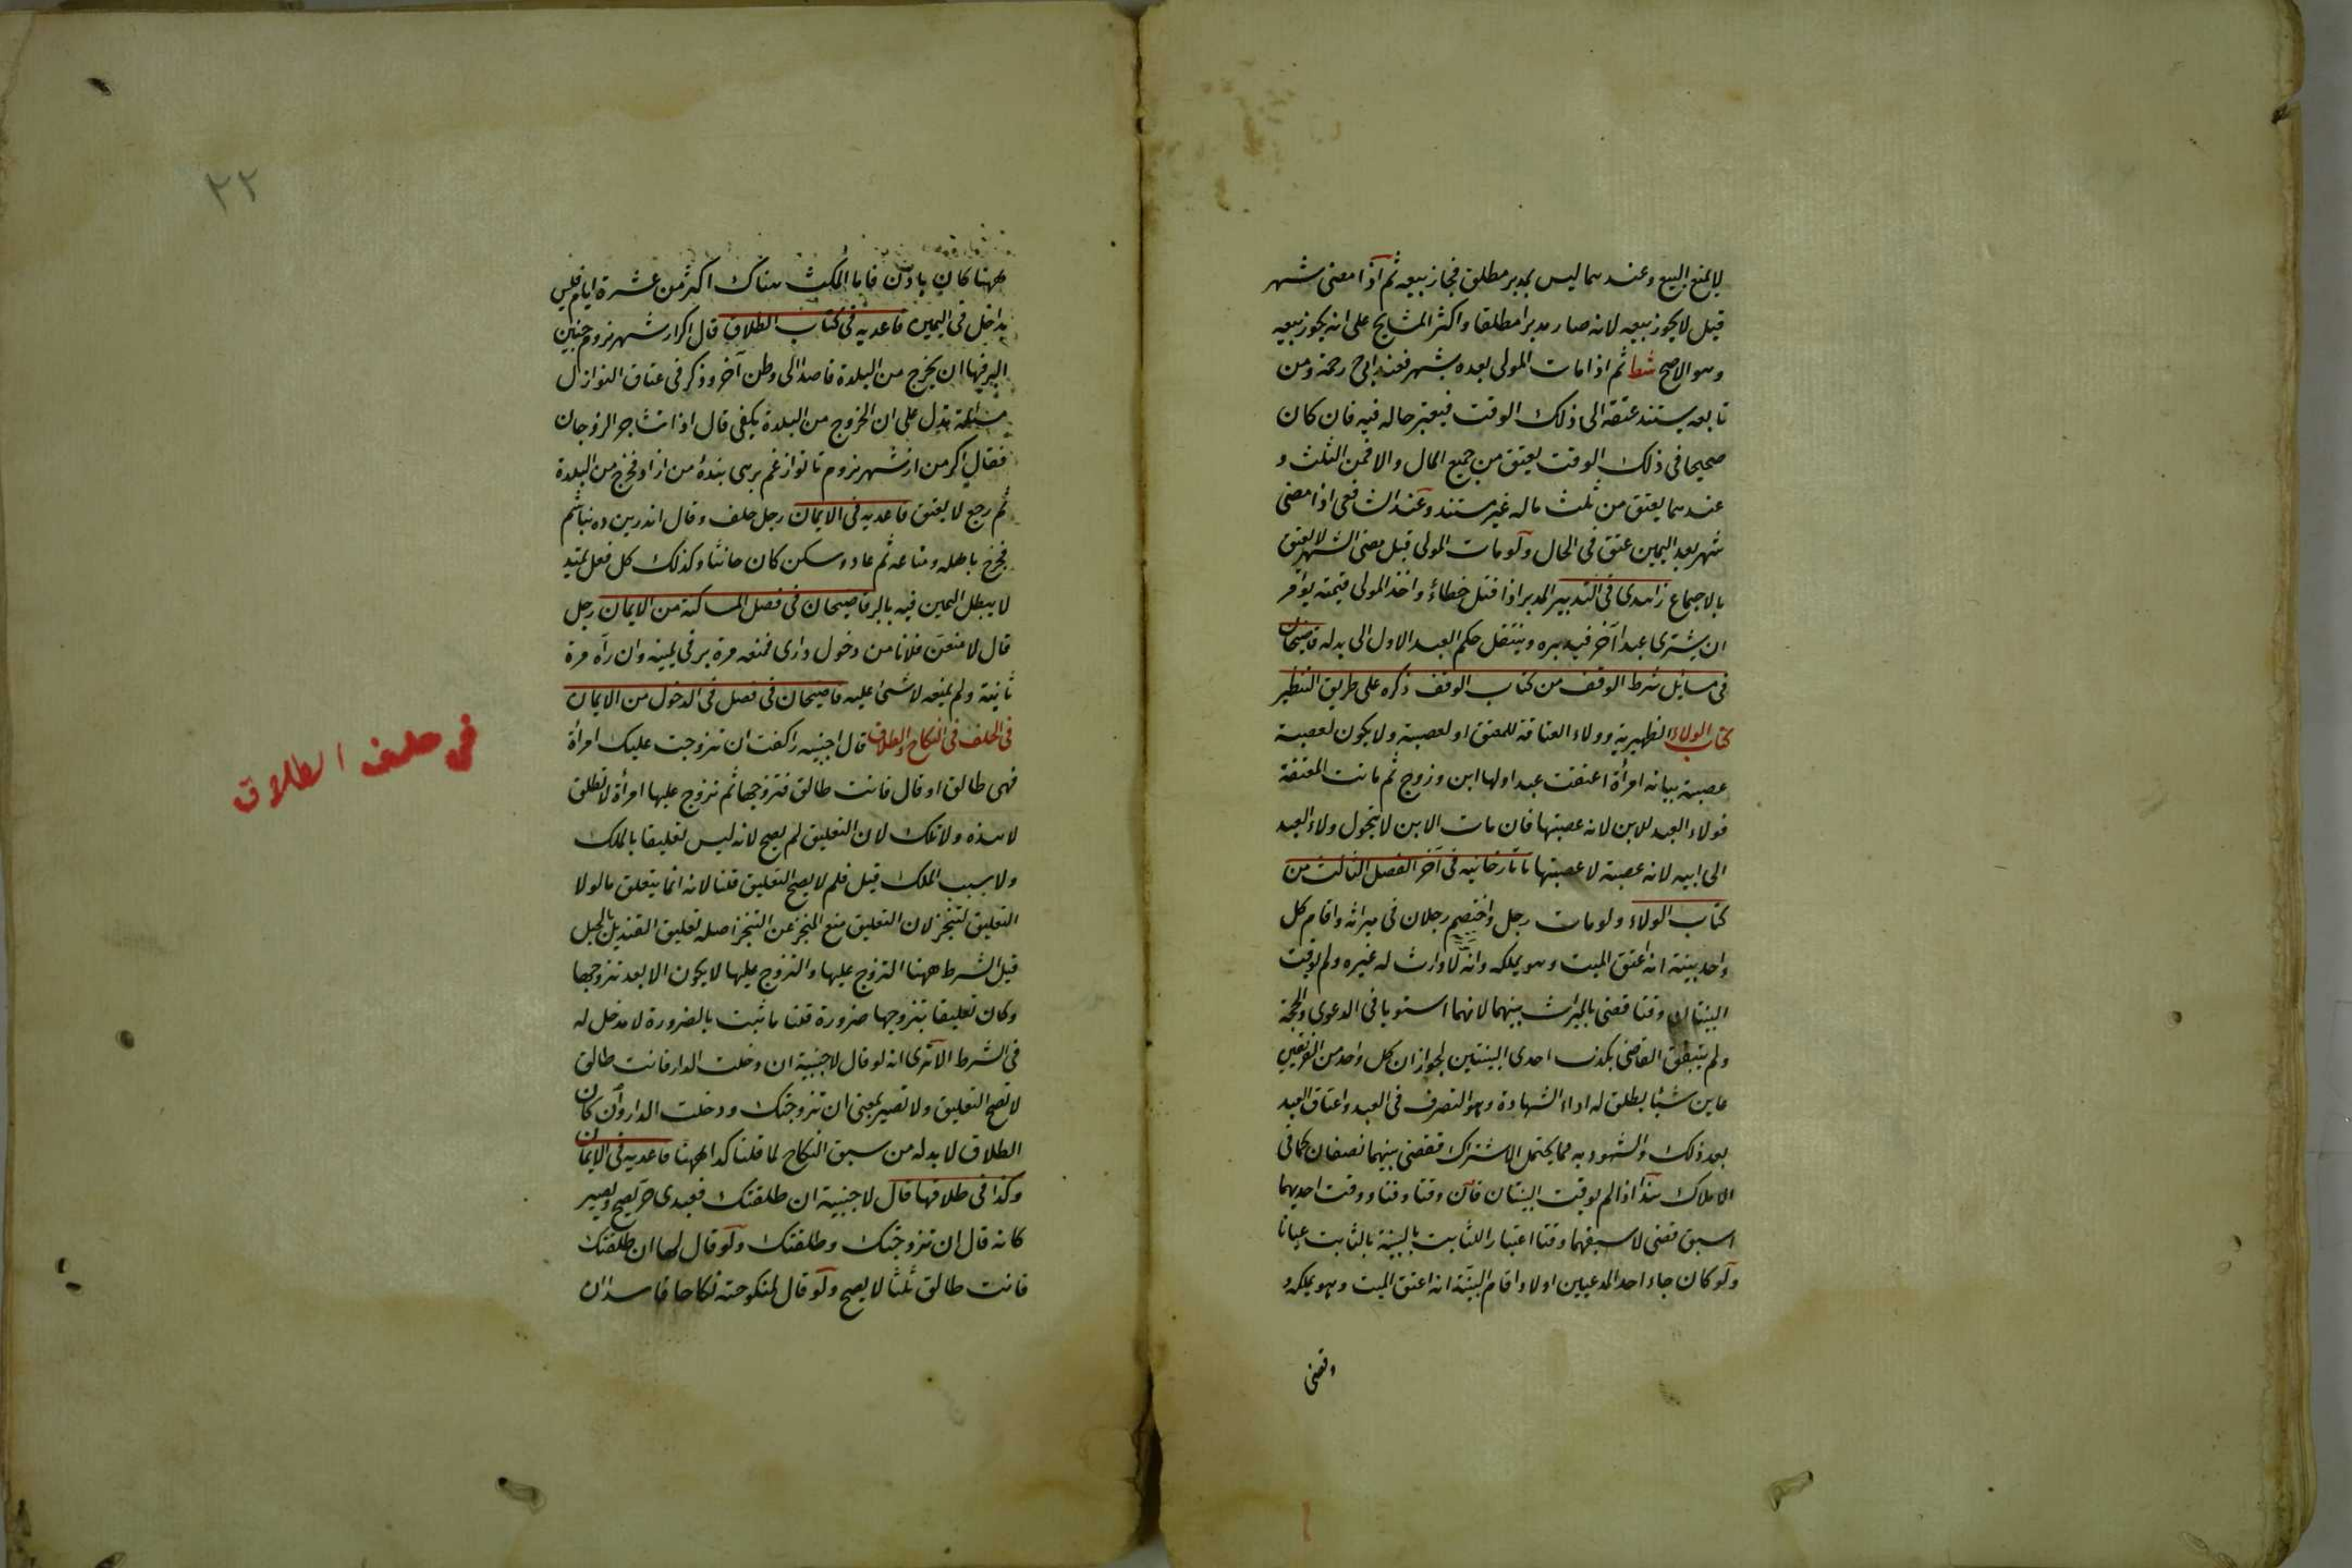 لا يمنع البيع وعندهما ليس بمدبر مطلق فجاز بيعه ثم اذا مضى شهر
قيل لا يجوز بيعه لانه صار مدبرا مطلقا واكثر المشايخ على انه يجوز بيعه
وهو الاصح ثم اذا مات المولى بعده بشهر فعند ابى ح رحمه ومن
تابعه يستند عتقه الى ذلك الوقت فيعتبر حاله فيه فان كان
صحيحا فى ذلك الوقت يعتق من جميع المال والا فمن الثلث و
عندهما يعتق من ثلث ماله غير مستند وعند الشافعى اذا مضى
شهر بعد اليمين عتق فى الحال ولو مات المولى قبل مضى الشهر لا يعتق
بالاجماع زاهدى فى التدبير المدبر اذا قتل خطاء واخذ المولى قيمته يؤمر
ان يشترى عبدا آخر فيدبره وينتقل حكم العبد الاول الى بدله قاضيخان
فى مسايل شرط الوقف من كتاب الوقف ذكره على طريق التنظير
كتاب الولاء الظهيرية وولاء العتاقة للمعتق او لعصبته ولا يكون لعصبة
عصبته بيانه امرأة اعتقت عبدا ولها ابن وزوج ثم ماتت المعتقة
فولاء العبد للابن لانه عصبتها فان مات الابن لا يتحول ولاء العبد
الى ابيه لانه عصبة لا عصبتها تاتارخانيه فى آخر الفصل الثالث من
كتاب الولاء ولو مات رجل واختصم رجلان فى ميراثه واقام كل
واحد بينة انه اعتق الميت وهو يملكه وانه لا وارث له غيره ولم توقت
البينتان وقتا قضى بالميراث بينهما لانهما استويا فى الدعوى والحجة
ولم يتيقن القاضى بكذب احدى البينتين لجواز ان كل واحد من الفريقين
عاين شيئا يطلق له اداء الشهادة وهو التصرف فى العبد واعتاق العبد
بعد ذلك والمشهود به مما يحتمل الاشتراك فقضى بينهما نصفان كما فى
الاملاك هذا اذا لم يوقت البينتان فان وقتا وقتا ووقت احديهما
اسبق قضى لاسبقهما وقتا اعتبار الثابت بالبينة بالثابت عيانا
ولو كان جاء احد المدعيين اولا واقام البينة انه اعتق الميت وهو يملكه و
وقضى
٢٢
ههنا كان باون فاما المكث هناك اكثر من عشرة ايام فليس
بداخل فى اليمين قاعديه فى كتاب الطلاق قال اكر ازشهر نروم چنين
البر فيها ان يخرج من البلدة قاصدا الى وطن آخر وذكر فى عتاق النوازل
مسئلة تدل على ان الخروج من البلدة يكفى قال اذا تشاجر الزوجان
فقال اكر من ازشهر نروم تا تو از غم برهى بنده من ازاد فخرج من البلدة
ثم رجع لا يعتق قاعديه فى الايمان رجل حلف وقال اندرين ده نباشم
فخرج باهله ومتاعه ثم عاد وسكن كان حانثا وكذلك كل فعل يمتد
لا يبطل اليمين فيه بالبر قاضيخان فى فصل المساكنة من الايمان رجل
قال لامنعن فلانا من دخول دارى فمنعه مرة بر فى يمينه وان رآه مرة
ثانية ولم يمنعه لا شئ عليه قاضيخان فى فصل فى الدخول من الايمان
فى الحلف فى النكاح والطلاق قال اجنبيه را كفت ان تزوجت عليك امرأة
فى حلف الطلاق
فهى طالق او قال فانت طالق فتزوجها ثم تزوج عليها امرأة لا تطلق
لا هذه ولا تلك لان التعليق لم يصح لانه ليس تعليقا بالملك
ولا بسبب الملك قيل فلم لا يصح التعليق قلنا لانه انما يتعلق ما لولا
التعليق لتنجز لان التعليق منع المنجز عن التنجز اصله تعليق القنديل بالحبل
قيل الشرط ههنا التزوج عليها والتزوج عليها لا يكون الا بعد تزوجها
وكان تعليقا بتزوجها ضرورة قلنا ما ثبت بالضرورة لا مدخل له
فى الشرط الا ترى انه لو قال لاجنبية ان دخلت الدار فانت طالق
لا تصح التعليق ولا تصير بمعنى ان تزوجتك ودخلت الدار وان كان
الطلاق لا بد له من سبق النكاح لما قلنا كذا ههنا قاعديه فى الايمان
وكذا فى طلاقها قال لاجنبية ان طلقتك فعبدى حر يصح ويصير
كانه قال ان تزوجتك وطلقتك ولو قال لها ان طلقتك
فانت طالق ثلثا لا يصح ولو قال لمنكوحته نكاحا فاسدا ان